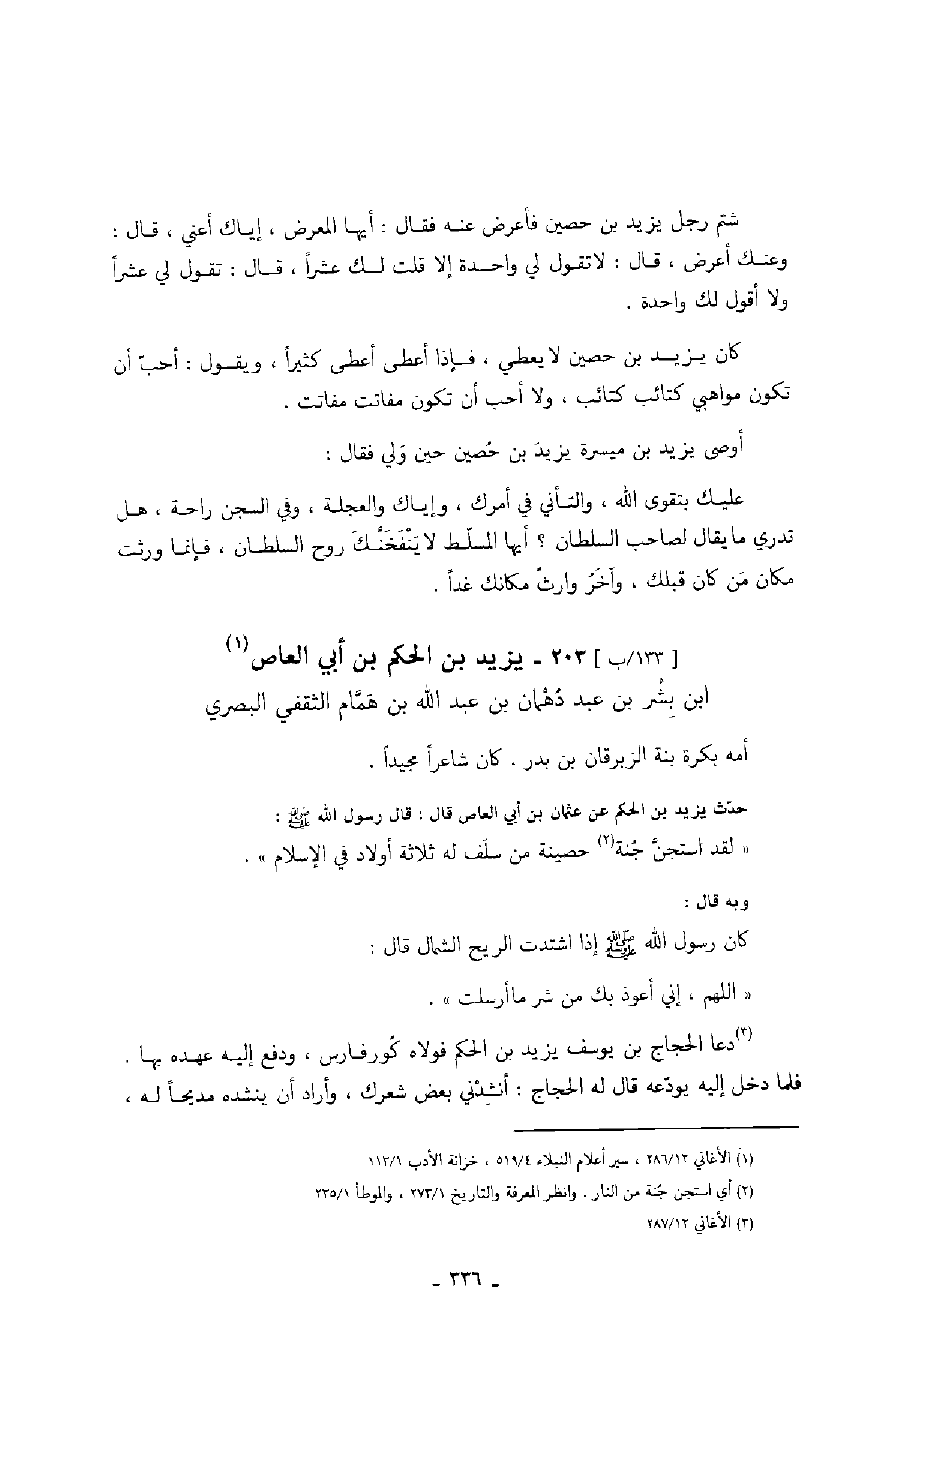 شتم رجل يزيد بن حصين فأعرض عنه فقال : أيها المعرض ، إياك أعني ، قال :
وعنك أعرض ، قال : لاتقول لي واحدة إلا قلت لك عشراً ، قال : تقول لي عشراً
ولا أقول لك واحدة .
كان يزيد بن حصين لايعطي ، فإذا أعطى أعطى كثيراً ، ويقول : أحبّ أن
تكون مواهبي كتائب كتائب ، ولا أحب أن تكون مفاتت مفاتت .
أوصى يزيد بن ميسرة يزيدَ بن حُصين حين وَلي فقال :
عليك بتقوى الله ، والتأني في أمرك ، وإياك والعجلة ، وفي السجن راحة ، هل
تدري مايقال لصاحب السلطان ؟ أيها المسلّط لايَنْفَخَنَّكَ روح السلطان ، فإنما ورثت
مكان مَن كان قبلك ، وآخَرُ وارثٌ مكانك غداً .
[ ١٣٣/ب ] ٢٠٣ ـ يزيد بن الحكم بن أبي العاص(١)
ابن بِشْر بن عبد دُهْمان بن عبد الله بن هَمَّام الثقفي البصري
أمه بكرة بنة الزبرقان بن بدر . كان شاعراً مجيداً .
حدّث يزيد بن الحكم عن عثمان بن أبي العاص قال : قال رسول الله ﷺ :
« لقد استجنَّ جُنة(٢) حصينة من سلَف له ثلاثة أولاد في الإسلام » .
وبه قال :
كان رسول الله ﷺ إذا اشتدت الريح الشمال قال :
« اللهم ، إني أعوذ بك من شر ماأرسلت » .
(٣)دعا الحجاج بن يوسف يزيد بن الحكم فولاه كُورفارس ، ودفع إليه عهده بها .
فلما دخل إليه يودّعه قال له الحجاج : أنشدْني بعض شعرك ، وأراد أن ينشده مديحاً له ،
(١) الأغاني ٢٨٦/١٢ ، سير أعلام النبلاء ٥١٩/٤ ، خزانة الأدب ١١٣/١
(٢) أي استجن جُنة من النار . وانظر المعرفة والتاريخ ٢٧٣/١ ، والموطأ ٢٣٥/١
(٣) الأغاني ٢٨٧/١٢
ـ ٣٣٦ ـ